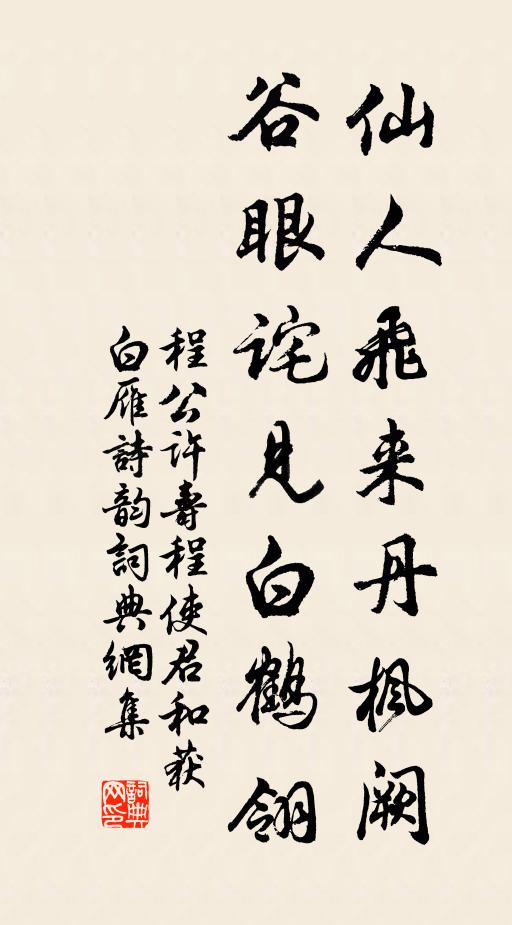 仙人飛来丹楓闕
谷眼詫見白鶴翎
程公許壽程使君和获
白雁詩韵詞典網集
詞典网印